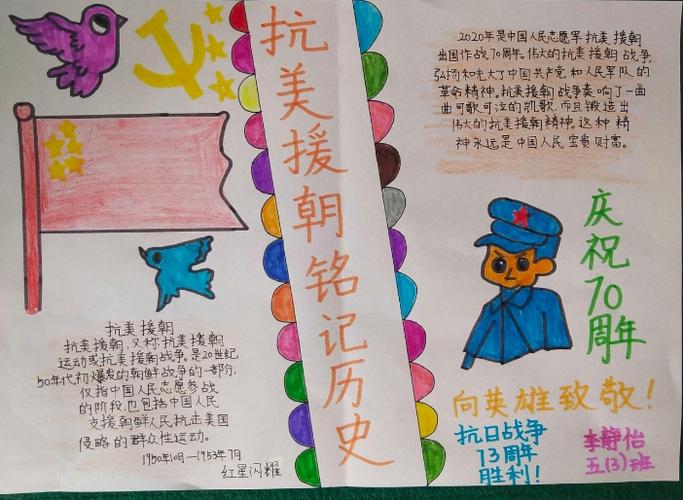 抗美援朝铭记历史
2020年是中国人民志愿军抗美援朝
出国作战70周年。伟大的抗美援朝战争,
弘扬和光大了中国共产党和人民军队的
革命精神。抗美援朝战争奏响了一曲
曲可歌可泣的凯歌。而且锻造出
伟大的抗美援朝精神。这种精
神永远是中国人民宝贵财富。
庆祝70周年
向英雄致敬!
抗日战争
73周年
胜利!
李静怡
五(3)班
抗美援朝
抗美援朝,又称抗美援朝
运动或抗美援朝战争。是20世纪
50年代初爆发的朝鲜战争的一部分,
仅指中国人民志愿参战
的阶段,也包括中国人民
支援朝鲜人民抗击美国
侵略的群众性运动。
1950年10月—1953年7月
红星闪耀